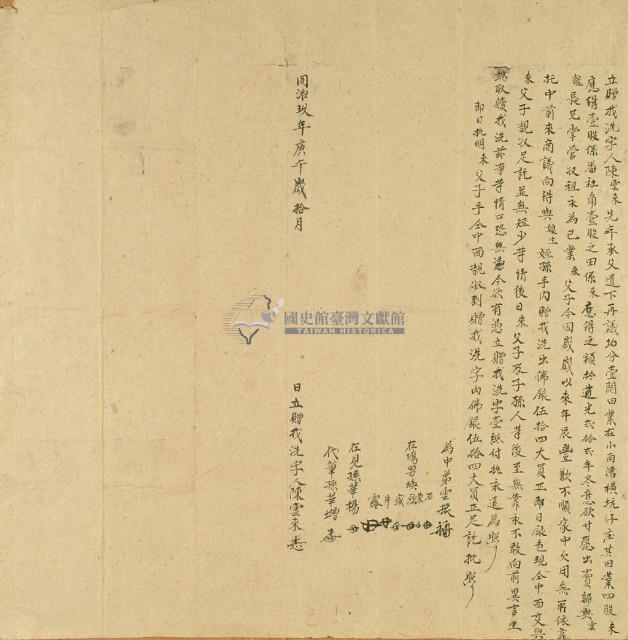 立贈找洗字人陳雲來先年承父遺下再議均分壹鬮田業在小南灣橫坑仔庄其田業四股來
應得壹股係番社角壹股之田係來應得之額於道光貳拾貳年冬意欲甘愿出賣歸與雲
龍長兄掌管收租永為己業來父子今因歲歲以來年辰豐歉不順家中欠用無所依靠
托中前來商議向得與娘生姪孫手內贈找洗出佛銀伍拾四大員正即日銀色現仝中面交與
來父子親收足訖並無短少等情後日來父子及子孫人等後至無靠永不敢向前異言生
端取贖找洗茲事等情口恐無憑今欲有憑立贈找洗字壹紙付執永遠為照
即日批明來父子手仝中面親收到贈找洗字內佛銀伍拾四大員正足訖批照
為中弟雲振
在場男
在見孫華楊
代筆孫華增
同治玖年庚午歲拾月 日立贈找洗字人陳雲來
國史館臺灣文獻館
TAIWAN HISTORICA